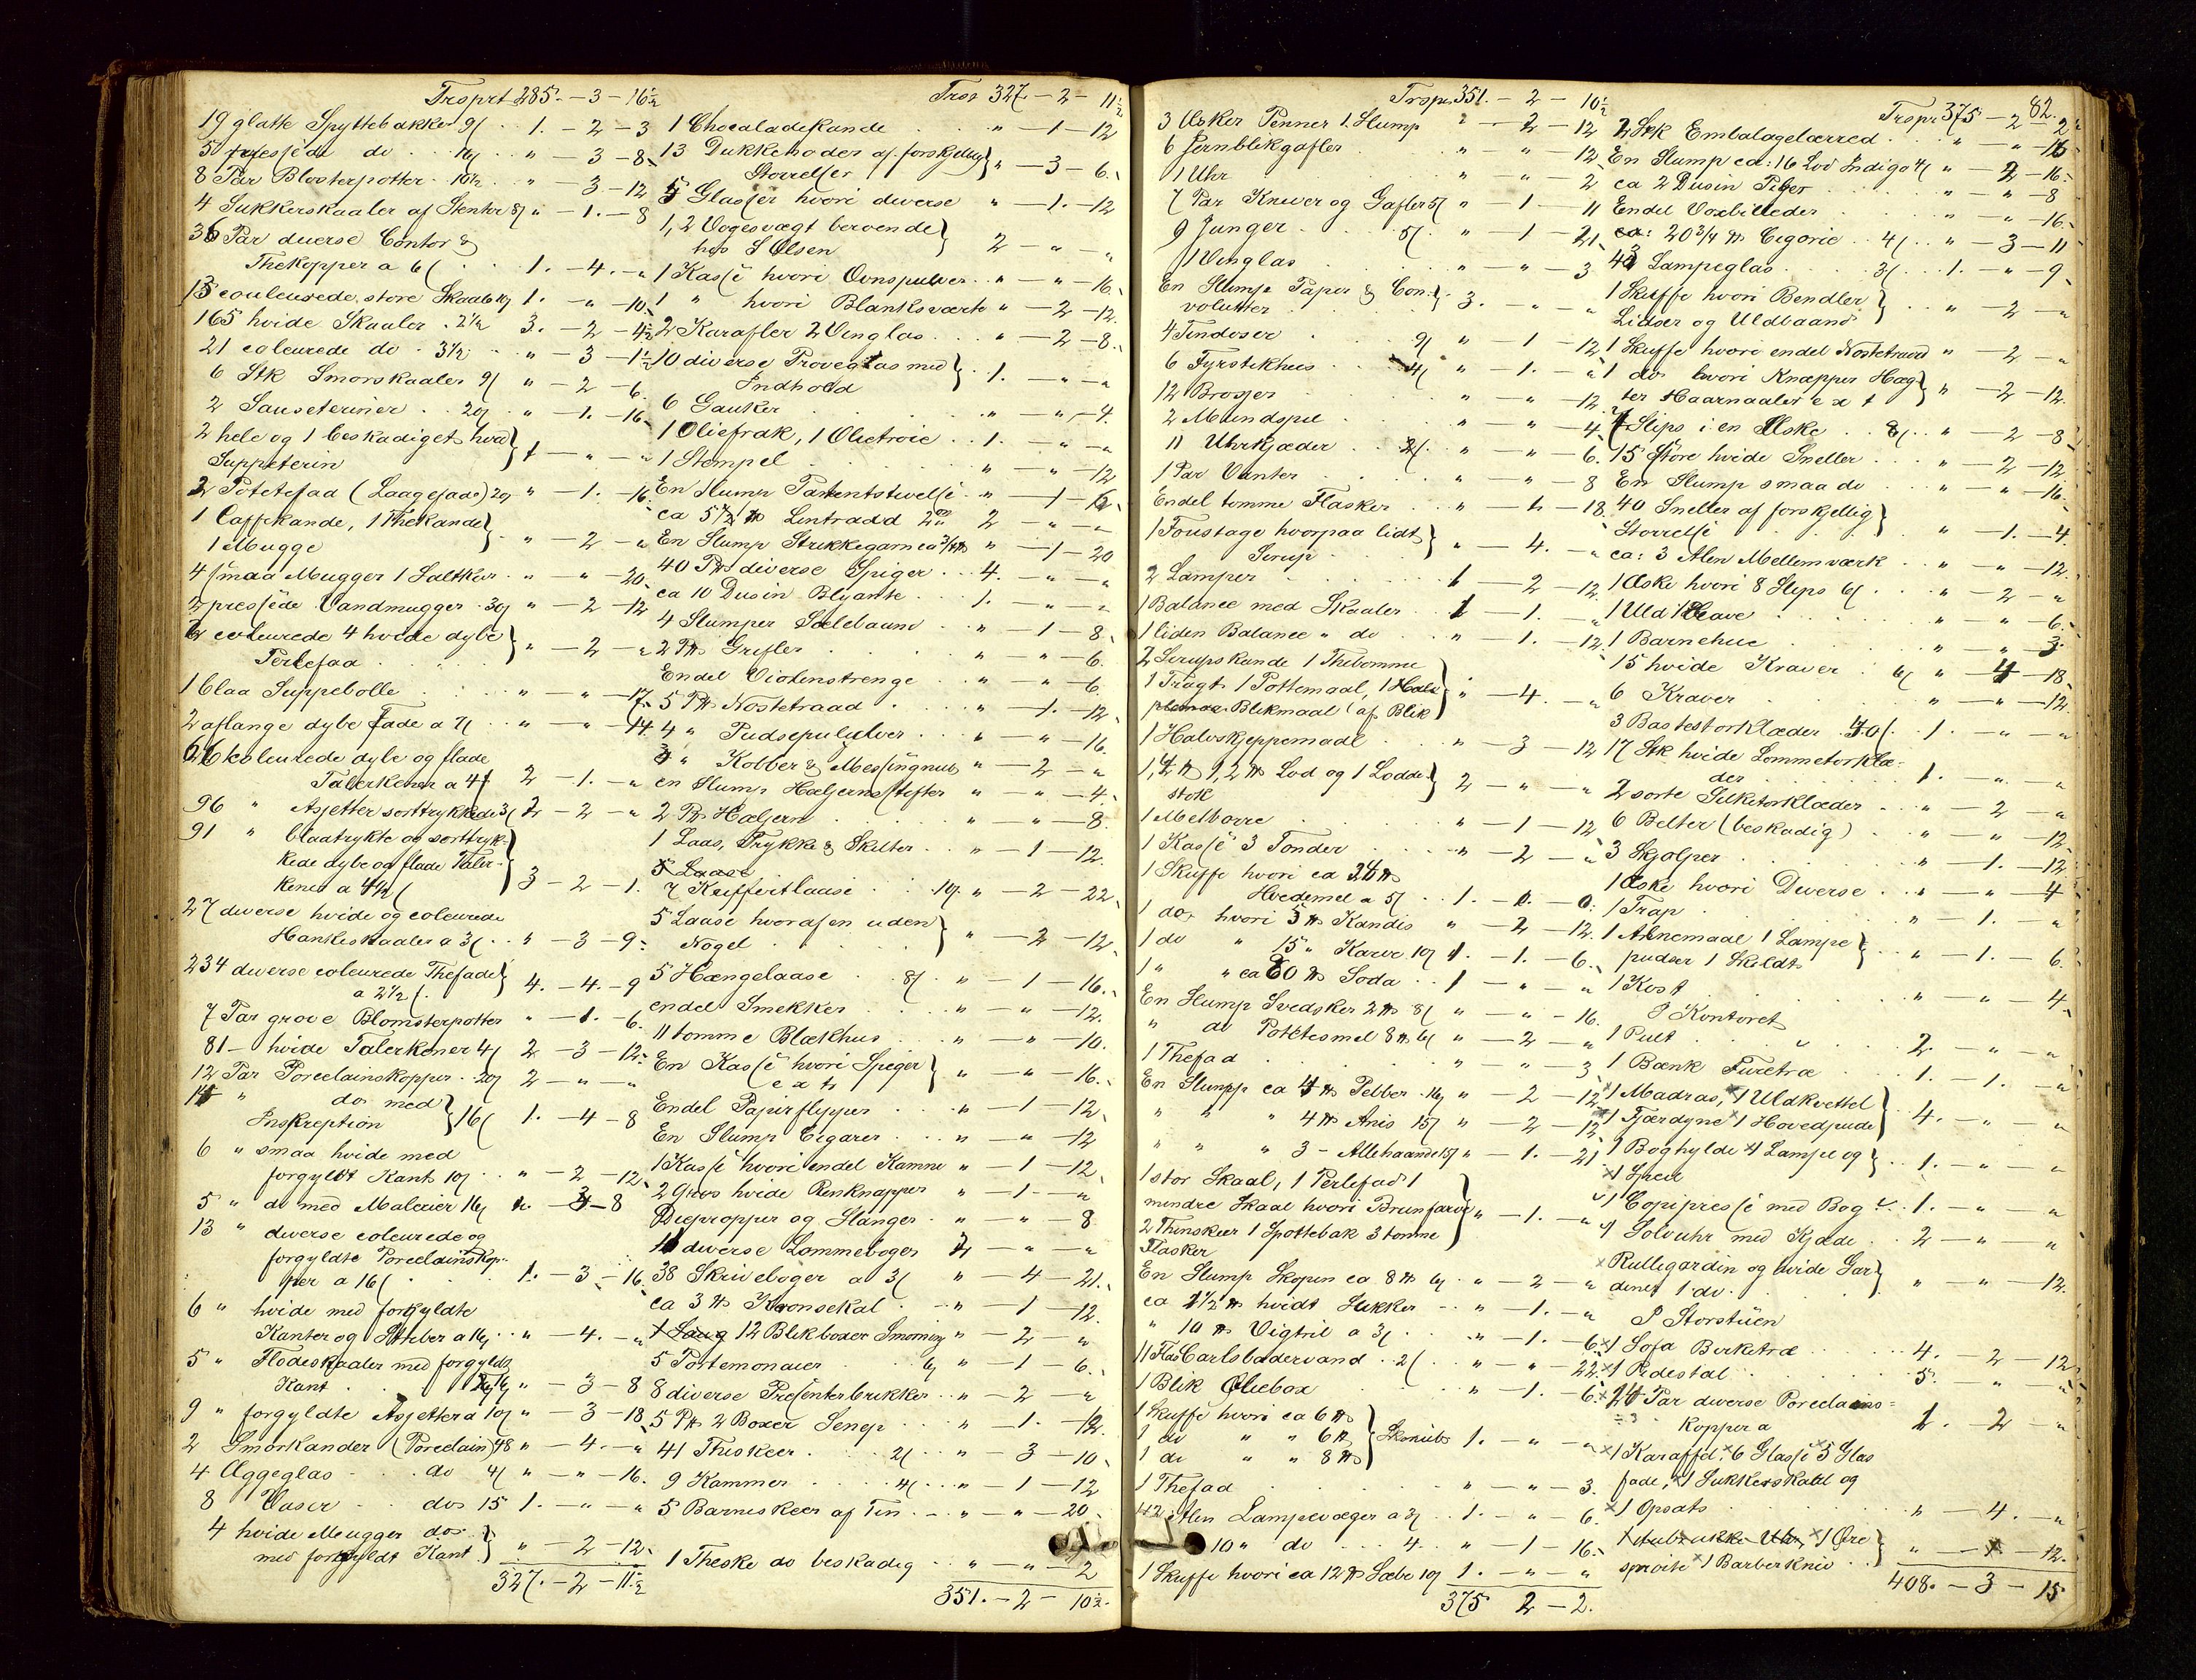 Trsprt 285. - 3 - 16½
19 glatte Spyttebakker 9/ . 1. - 2 - 3
5 pressede do . 16/ . " - 3 - 8
8 Par Blosterpotter . 10½ . " - 3 - 12
4 Sukkerskaaler af Stentøi 8/ " - 1. - 8
36 Par diverse Contor &
Thekopper a 6/ . . 1. - 4. - "
13 couleurede store Skaale 10/ 1. - " - 10.
165 hvide Skaaler . 2½ 3. - 2 - 4½
21 coleurede do . 3½ . . " - 3 - 1½
6 Stk Smørskaaler 9/ " - 2 - 6.
2 Sauseteriner . . 20/ . " - 1. - 16
2 hele og 1 beskadiget hvid
Suppeterin 1 - " - "
2 Potetefad (Laagefade) 20/ " - 1. - 16.
1 Caffekande, 1 Thekande
1 Mugge . " - 2 - "
4 smaa Mugger 1 Saltkar . . " - " - 20.
2 pressede Vandmugger . 30/ " - 2 - 12
2 coleurede 4 hvide dybe
Perlefad . . . . " - 2 - "
1 blaa Suppebolle . . . " - " - 17.
2 aflange dybe Fade a 7/ . . " - " - 14.
26 koleurede dybe og flade
Talerkener a 4/ 2 - 1. - "
96 " Asjetter sorttrykkede 3/ 2 - 2 - "
91 " blaatrykte og sorttryk-
kede dybe og flade Taler-
kener a 4½/ 3 - 2 - 1.
27 diverse hvide og coleurede
Hankeskaaler a 3/ . . " - 3 - 9
234 diverse coleurede Thefade
a 2½/. 4. - 4. - 9
7 Par grove Blomsterpotter " - 1. - 6.
81 - hvide Talerkener 4/ 2 - 3 - 12
12 Par Porcelainskopper . 20/ 2 - " - "
14 " do med
Inskreption 16/ 1. - 4 - 8
6 " smaa hvide med
forgyldt Kant 10/ . . " - 2 - 12
5 " do med Malerier 16/ " - 3 - 8
13 " diverse coleurede og
forgyldte Porcelainskop-
per a 16/ . . . 1. - 3 - 16
6 " hvide med forgyldte
Kanter og Stteber a 16/ . . " - 4. - "
5 " Flødeskaaler med forgyldt
Kant . . . 16/ " - 3 - 8
9 " forgyldte Asjetter a 10/ " - 3 - 18
2 Smørkander (Porcelain) 48 " - 4. - "
4 Æggeglas . . . do 4/ " - " - 16.
8 Vaser . . do 15 1. - " - "
4 hvide Mugger do
med forgyldt Kant " - 2 - 12
327. - 2 - 11½
Trsp 327. - 2 - 11½
1 Chocaladekande . . . " - 1 - 12
13 Dukkehoder af forskjellig
Størrelser " - 3 - 6.
5 Glasser hvori diverse " - 1. - 12
1, 2 Vogesvægt beroende
hos S Olsen 2 - " - "
1 Kasse hvori Ovnspulver . . " - " - 16.
1 " hvori Blanksværte " - 2 - 12.
2 Karafler 2 Vinglas . . . " - 2 - 8.
10 diverse Prøveglas med
Indhold 1. - " - "
6 Gauker . . . . . " - " - 4.
1 Oliefrak, 1 Olietrøie . . 1. - " - "
1 Stempel . . . . . " - " - 12
En Slump Pattentstvelse . . " - 1 - 12
ca 5½ ℔ Lintraad 2 2 - " - "
En Slump Strikkegarn ca ¾ ℔ " - 1 - 20
40 ℔ diverse Spiger . . . 4. - " - "
ca 10 Dusin Blyante . . . 1. - " - "
4 Slumper Sælebaand . . " - 1 - 8.
2 ℔ Grifler . . . . . " - " - 6.
Endel Violenstrenge . . " - " - 6.
5 ℔ Nøstetraad . . . " - 1. - 12
4 " Pudsepulver . . . " - " - 16.
3 " Kobber & Messingnub " - 2 - "
en Slump Hæljernsstifter " - " - 4.
2 ℔ Hæljern . . . . " - " - 8.
1 Laas, Trykke & Skilter . . " - 1 - 12.
5 Laase
7 Kuffertlaase . . 10/. " - 2 - 22
5 Laase hvoraf en uden
Nøgel . . . . " - 2 - 12
5 Hængelaase . . 8/. " - 1 - 16.
endel Smekker . . . " - " - 12.
11 tomme Blækhus . . . " - " - 10.
En Kasse hvori Spiger
e x t " - " - 16.
Endel Papirflipper . . . " - 1 - 12
En Slump Cigarer . . . " - " - 12
1 Kasse hvori endel Kamme " - 1 - 12
2 Gros hvide Benknapper " - 1 - "
Diepropper og Slanger . . " - " - 8
11 diverse Lommebøger 2 - " - "
38 Skrivebøger a 3/ " - 4 - 21.
ca 3 ℔ Kronsekal . . " - 1 - 12.
12 Blikboxer Smøring " - 2 - "
5 Portemonaier 6/ " - 1 - 6.
8 diverse Presenterbrikker . . " - 2 - "
5 ℔ 2 Boxer Senep . . " - 1. - 12.
41 Theskeer . . . 2/. " - 3 - 10
9 Kammer . . . 4/. . " - 1 - 12
5 Barneskeer af Tin . . " - " - 20
1 Theske do beskadig . . " - " - 2
351. - 2 - 10½.
Trspr. 351. - 2 - 10½
3 Æsker Penner 1 Slump " - 2 - 12
6 Jernblikgafler . . . " - " - 12
1 Uhr " - " - 2
7 Par Kniver og Gafler 5/ " - 1 - 11
9 Junger . . . 5/. " - 1 - 21
1 Vinglas " - " - 3
En Slump Papir & Con-
volutter 3. - " - "
4 Tindoser . 9/ " 1 - 12
6 Fyrstikhus . . 4/ " - 1. - "
12 Brosjer . . . . " - " - 12.
2 Mundspil . . . . " - " - 4.
11 Uhrkjæder . . 2/. " - " - 6.
1 Par Vanter . . . . " - " - 8
Endel tomme Flasker . . " - 1 - 18.
1 Foustage hvorpaa lidt
Sirup . . . " - 4. - "
2 Lamper . . . . . 1 - 2 - 12
1 Balance med Skaaler . . 1 - 1. - "
1 liden Balance " do . . " - 1. - 12
2 Sirupskande 1 Thebomme
1 Tragt 1 Pottemaal, 1 Halv
Blikmaal (af Blik " - 4. - "
1 Halvskjeppemaal . . " - 3 - 12
1, 4 ℔ 1, 2 ℔ Lod og 1 Lodde-
stok 2 - " - "
1 Melbørre . . . . " - 1 - 12
1 Kasse 3 Tønder . . " - 2 - "
1 Skuffe hvori ca 24 ℔
Hvedemel a 5/ . . 1. - 0. - 0.
1 do hvori 5 ℔ Kandis " - 2 - 12.
1 do " 15 " Karve 10/ 1. - 1. - 6.
1 " " ca 60 ℔ Soda . . 1 - " - "
En Slump Svedsker 2 ℔ 8/ " - " - 16.
" do Potetesmel 8 ℔ 6/ " - 2 - "
1 Thefad . . . . . " - " - 3
En Slump ca 4 ℔ Pebber . 16/ " - 2 - 12
" " " 4 ℔ Anis 15/ " - 2 - 12
" " " 3 - Allehaande 15/ " - 1. - 21
1 stor Skaal, 1 Perlefad 1
mindre Skaal hvori Brunfarve " - 1. - "
2 Thinskeer 1 Spottebak 3 tomme
Flasker
En Slump Skopin ca 8 ℔ 6/ . " - 2 - "
ca 2½ ℔ hvidt Sukker . . " - 1. - "
" 10 ℔ Vigtril a 3/. . . " - 1. - 6.
11 Flas Carlsbadervand . . 2/. " - " - 22.
1 Blik Oliebox . . . . " - 1. - 6.
1 Skuffe hvori ca 6 ℔
1 do " " 6 ℔ Skonub 1. - " - "
1 do " " 8 ℔
1 Thefad . . . . . " - " - 3.
42 Alen Lampevæger a 3/ . 1. - " - 6.
10 " do . . . 4. . " 1 - 16
1 Skuffe hvori ca 12 ℔ Sæbe 10/ 1. - " - "
375 2 - 2.
82.
Trspr 375 - 2 - 2
2 Stk Embalagelærred . . . " - " - 16
En Slump ca: 16 Lod Indigo 4/ " - 2 - 16.
ca 2 Dusin Piber . . . " - " - 8
Endel Voxbilleder . . . " - " - 16.
ca: 20 3/4 ℔ Cigorie . . 4/. . " - 3 - 11
43 Lampeglas . . . 3/. . 1. - " - 9.
1 Skuffe hvori Bendler
Lidser og Uldbaand " - 2 - "
1 Skuffe hvori endel Nøstetraad " - 2 - "
1 do hvori Knapper Hæg-
ter Haarnaaler e x t " - 2 - 12.
7 Slips i en Æske . . 8/. . " - 2 - 8
15 Større hvide Sneller . . " - 2 - 12
En Slump smaa do . . " - " - 16
40 Sneller af forskjellig
Størrelse . . . " - 1. - 4.
ca: 3 Alen Mellemværk . . " - " - 12.
1 Æske hvori 8 Slips 6/ . . . " - 2 - "
1 Uld Krave . . . . . " - " - 6.
1 Barnehue . . . . . " - " - 3
15 hvide Kraver . 6/ " - 4 - 18
6 Kraver . . . . " - " - 12
3 Bastestørklæder 40/. . 1. - " - "
17 Stk hvide Lommetørklæ-
der . . . . 1. - " - "
2 sorte Silketørklæder . . " - 2 - "
6 Belter (beskadig) . . " - " - 12
3 Skjolper . . . . " - 1. - 12
1 Æske hvori Diverse . . " - " - 4
1 Trap . . . . . " - 1. - "
1 Alnemaal 1 Lampe
pudser 1 Skildt " - 1. - 6.
1 Kost . . . . . " - " - 4.
I Kontoret
1 Pult . . . . . 2. - " - "
1 Bænk Furetræ . . 1. - 1. - "
1 Madras, 1 Uldkvettel
1 Fjærdyne 1 Hovedpude 4. - " - "
1 Boghylde 1 Lampe og
1 Speil . . 1. - " - "
1 Copipresse med Bog . . 1. - " - "
1 Sølvuhr med Kjæde . . 2 - " - "
Rullegardin og hvide Gar-
diner 1 do . . . . " - " - 12.
I Storstuen
1 Sofa Birketræ . . . 4. - 2 - 12
1 Pidestal . . . . . 5. - " - "
24 Par diverse Porcelains-
kopper a 2. - 2 - "
1 Karaffel, 6 Glasse 3 Glas
fade, 1 Sukkerskaal og
1 Opsats . . . . . " - 4. - "
1 Øre
sprøite 1 Barberkniv . . " - 1 - 12.
408. - 3 - 15